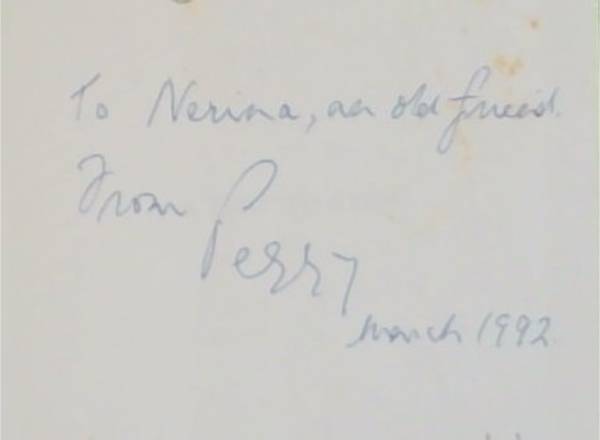 To Nerina, an old friend.
From
Perry
March 1992